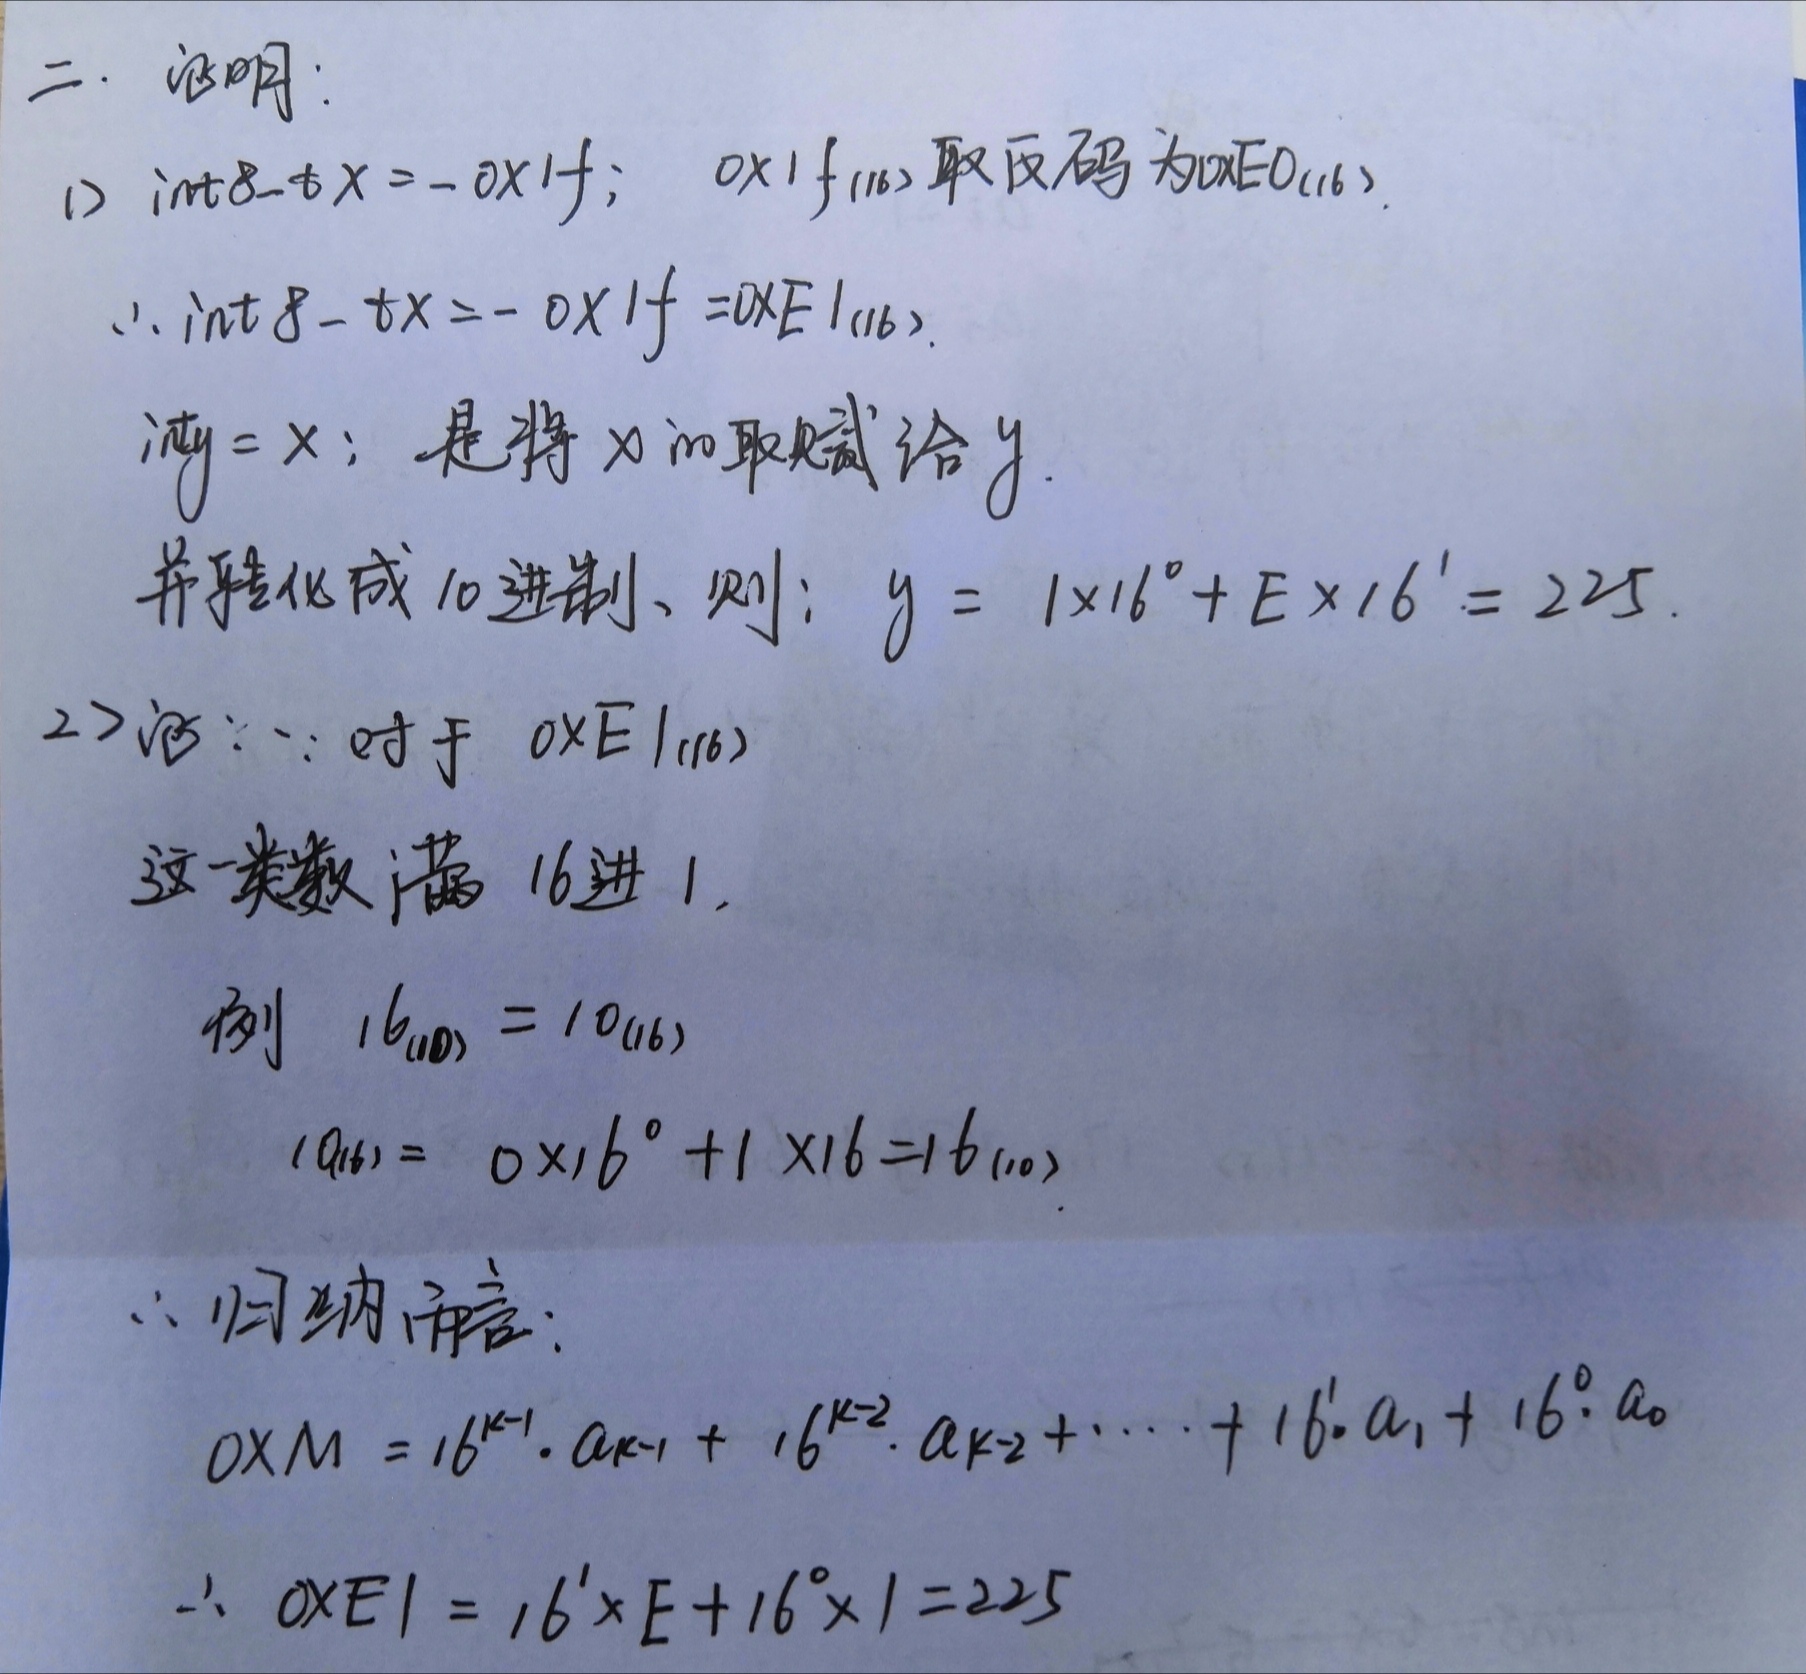 二. 证明:
1) int8_t x = - 0x1f; 0x1f(16) 取反码为0xE0(16).
∴ int8_t x = - 0x1f = 0xE1(16).
int y = x; 是将 x 的取赋给 y.
并转化成 10 进制、则: y = 1×16⁰ + E×16¹ = 225.
2) 证: ∵ 对于 0xE1(16)
这一类数满 16进 1.
例 16(10) = 10(16)
10(16) = 0×16⁰ + 1×16 = 16(10).
∴ 归纳而言:
0xM = 16ᴷ⁻¹·aₖ₋₁ + 16ᴷ⁻²·aₖ₋₂ + ····· + 16¹·a₁ + 16⁰·a₀
∴ 0xE1 = 16¹×E + 16⁰×1 = 225